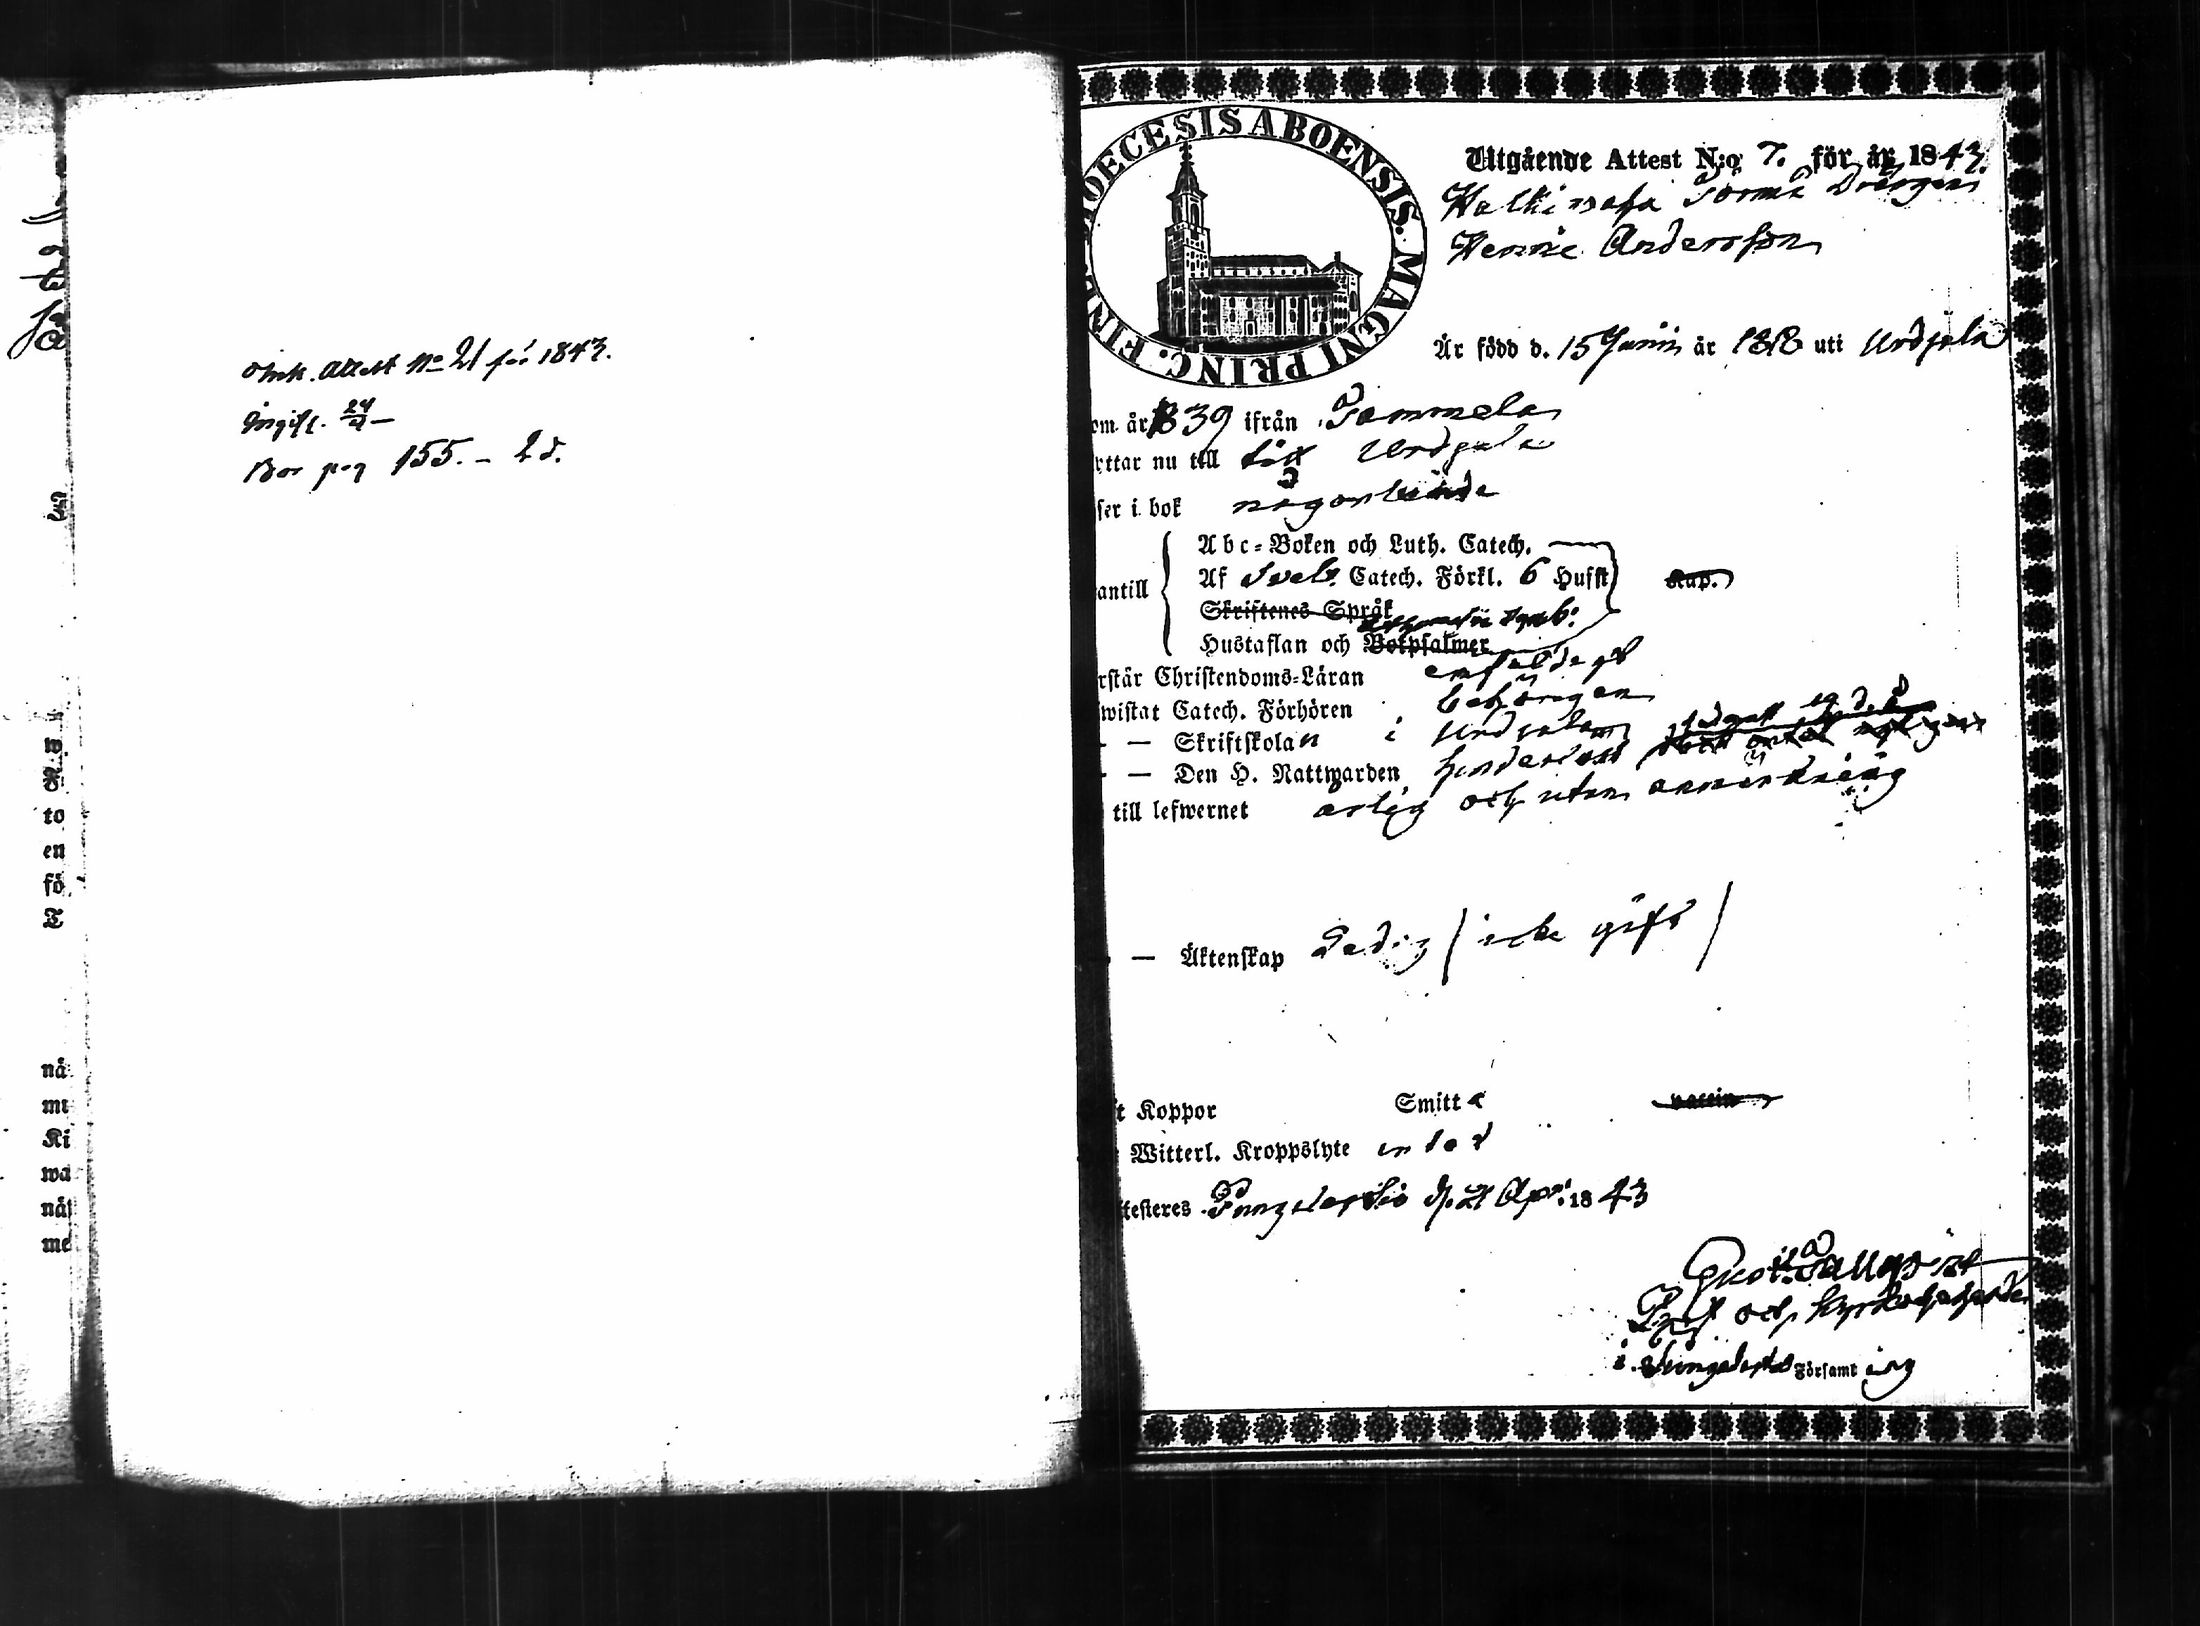 Ink. Attest No 21 för 1843.
Ingift. 24/4 –
Bor pag 155. – 2 d.
DIOECESIS ABOENSIS. MAGNI PRINC. FINL.
Utgående Attest N:o 7. för år 1843.
Henric Andersson
Är född d. 15 Junii år 1818 uti Urdjala
om år 1839 ifrån Tammela
yttar nu till Urdjala
ser i bok någorlunda
Abc-Boken och Luth. Catech.
antill Af Sveb. Catech. Förkl. 6 Hufst Kap.
Skriftenes Språk
Athanasii Symb:
Hustaflan och Bokpsalmer
rstår Christendoms-Läran enfaldigt
wistat Catech. Förhören behörigen
— Skriftskolan i Urdjala
— — Den H. Nattwarden
till lefwernet ärlig och utan anmärkning
— Äktenskap Ledig (icke gift)
t Koppor Smitt vaccin
Witterl. Kroppslyte utan
testeres Pungalaitio d. 21 Apr. 1843
och Kyrkoherde
i Församling
w
to
en
fö
T
nå
mt
Ki
wa
näs
me